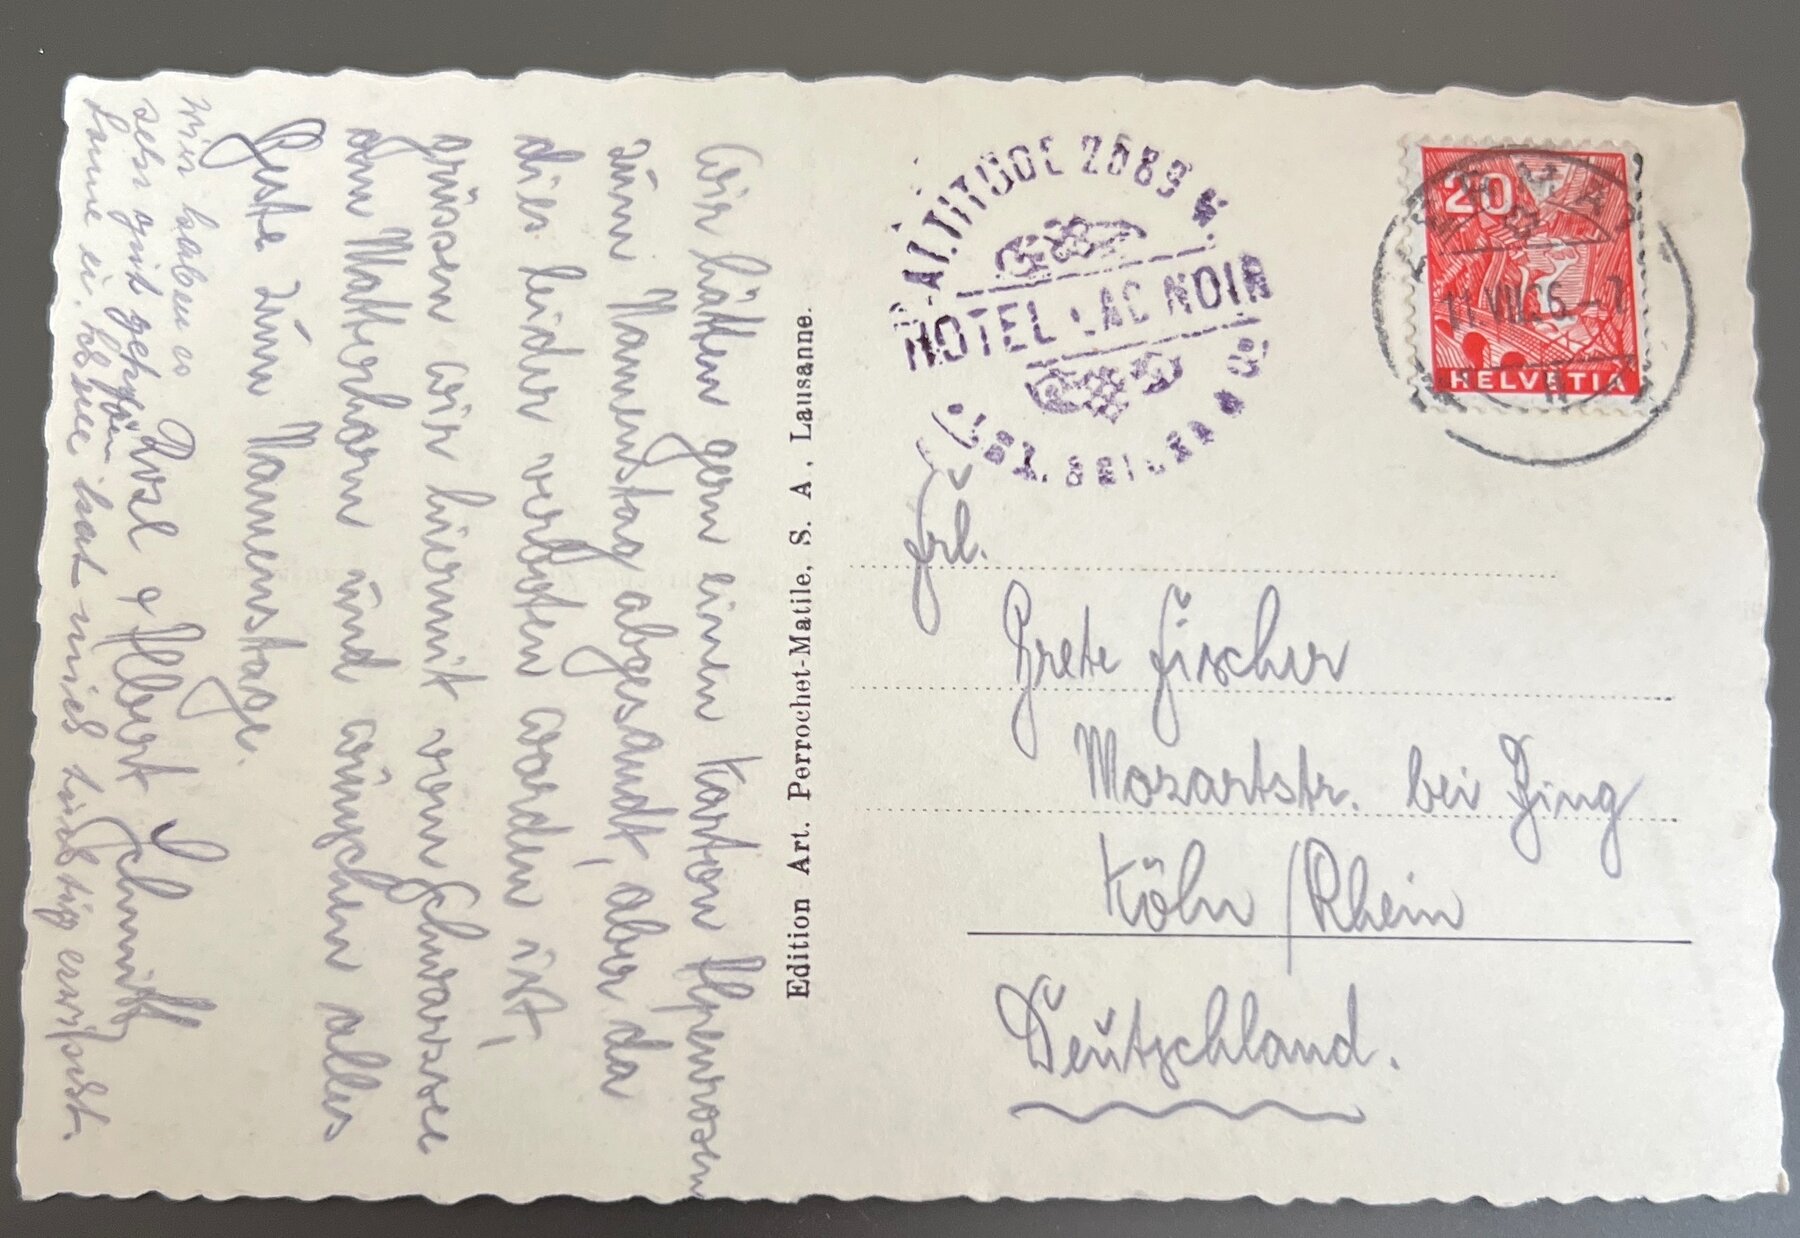 Wir hätten gern einen Karton Alpenrosen
zum Namenstag abgesandt, aber da
dies leider verboten worden ist,
grüssen wir hiermit vom Schwarzsee
am Matterhorn und wünschen alles
Gute zum Namenstage.
Rosl & Albert Schmitt
wir haben es
sehr gut getroffen
Sonne hat mich tüchtig erwischt.
Edition Art. Perrochet-Matile, S. A., Lausanne.
ALTITUDE 2589 M.
HOTEL LAC NOIR
20
11.VII.36.-7
HELVETIA
Frl.
Grete Fischer
Mozartstr. bei Zing
Köln /Rhein
Deutschland.